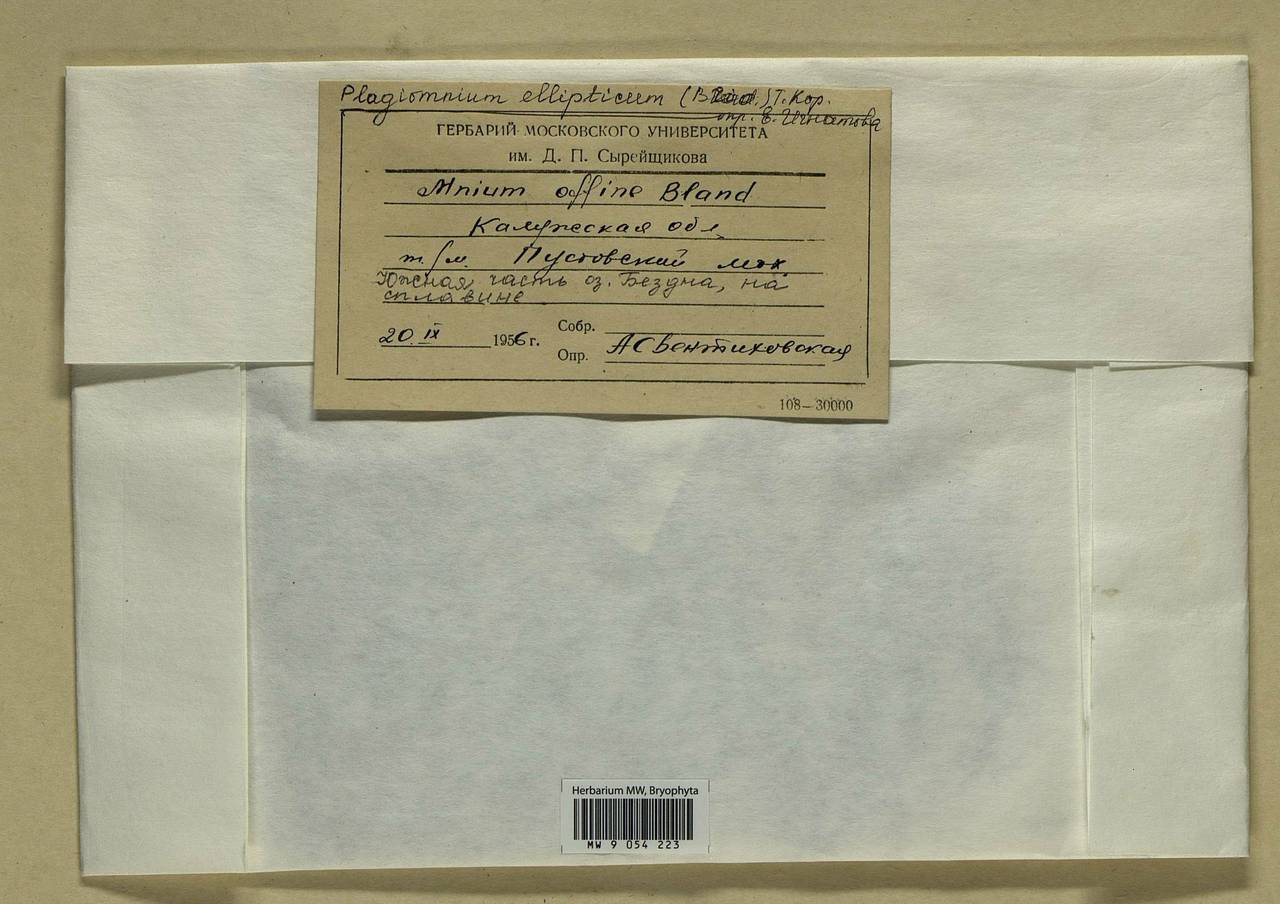 Plagiomnium ellipticum (Brid.) T. Kop.
опр. Е. Игнатова
ГЕРБАРИЙ МОСКОВСКОГО УНИВЕРСИТЕТА
им. Д. П. Сырейщикова
Mnium affine Bland
Калужская обл
т/м. Пустовский мох
Южная часть оз. Бездна, на
сплавине
20 IX 1956 г.
Собр.
Опр. А Свентиховская
108—30000
Herbarium MW, Bryophyta
MW 9 054 223